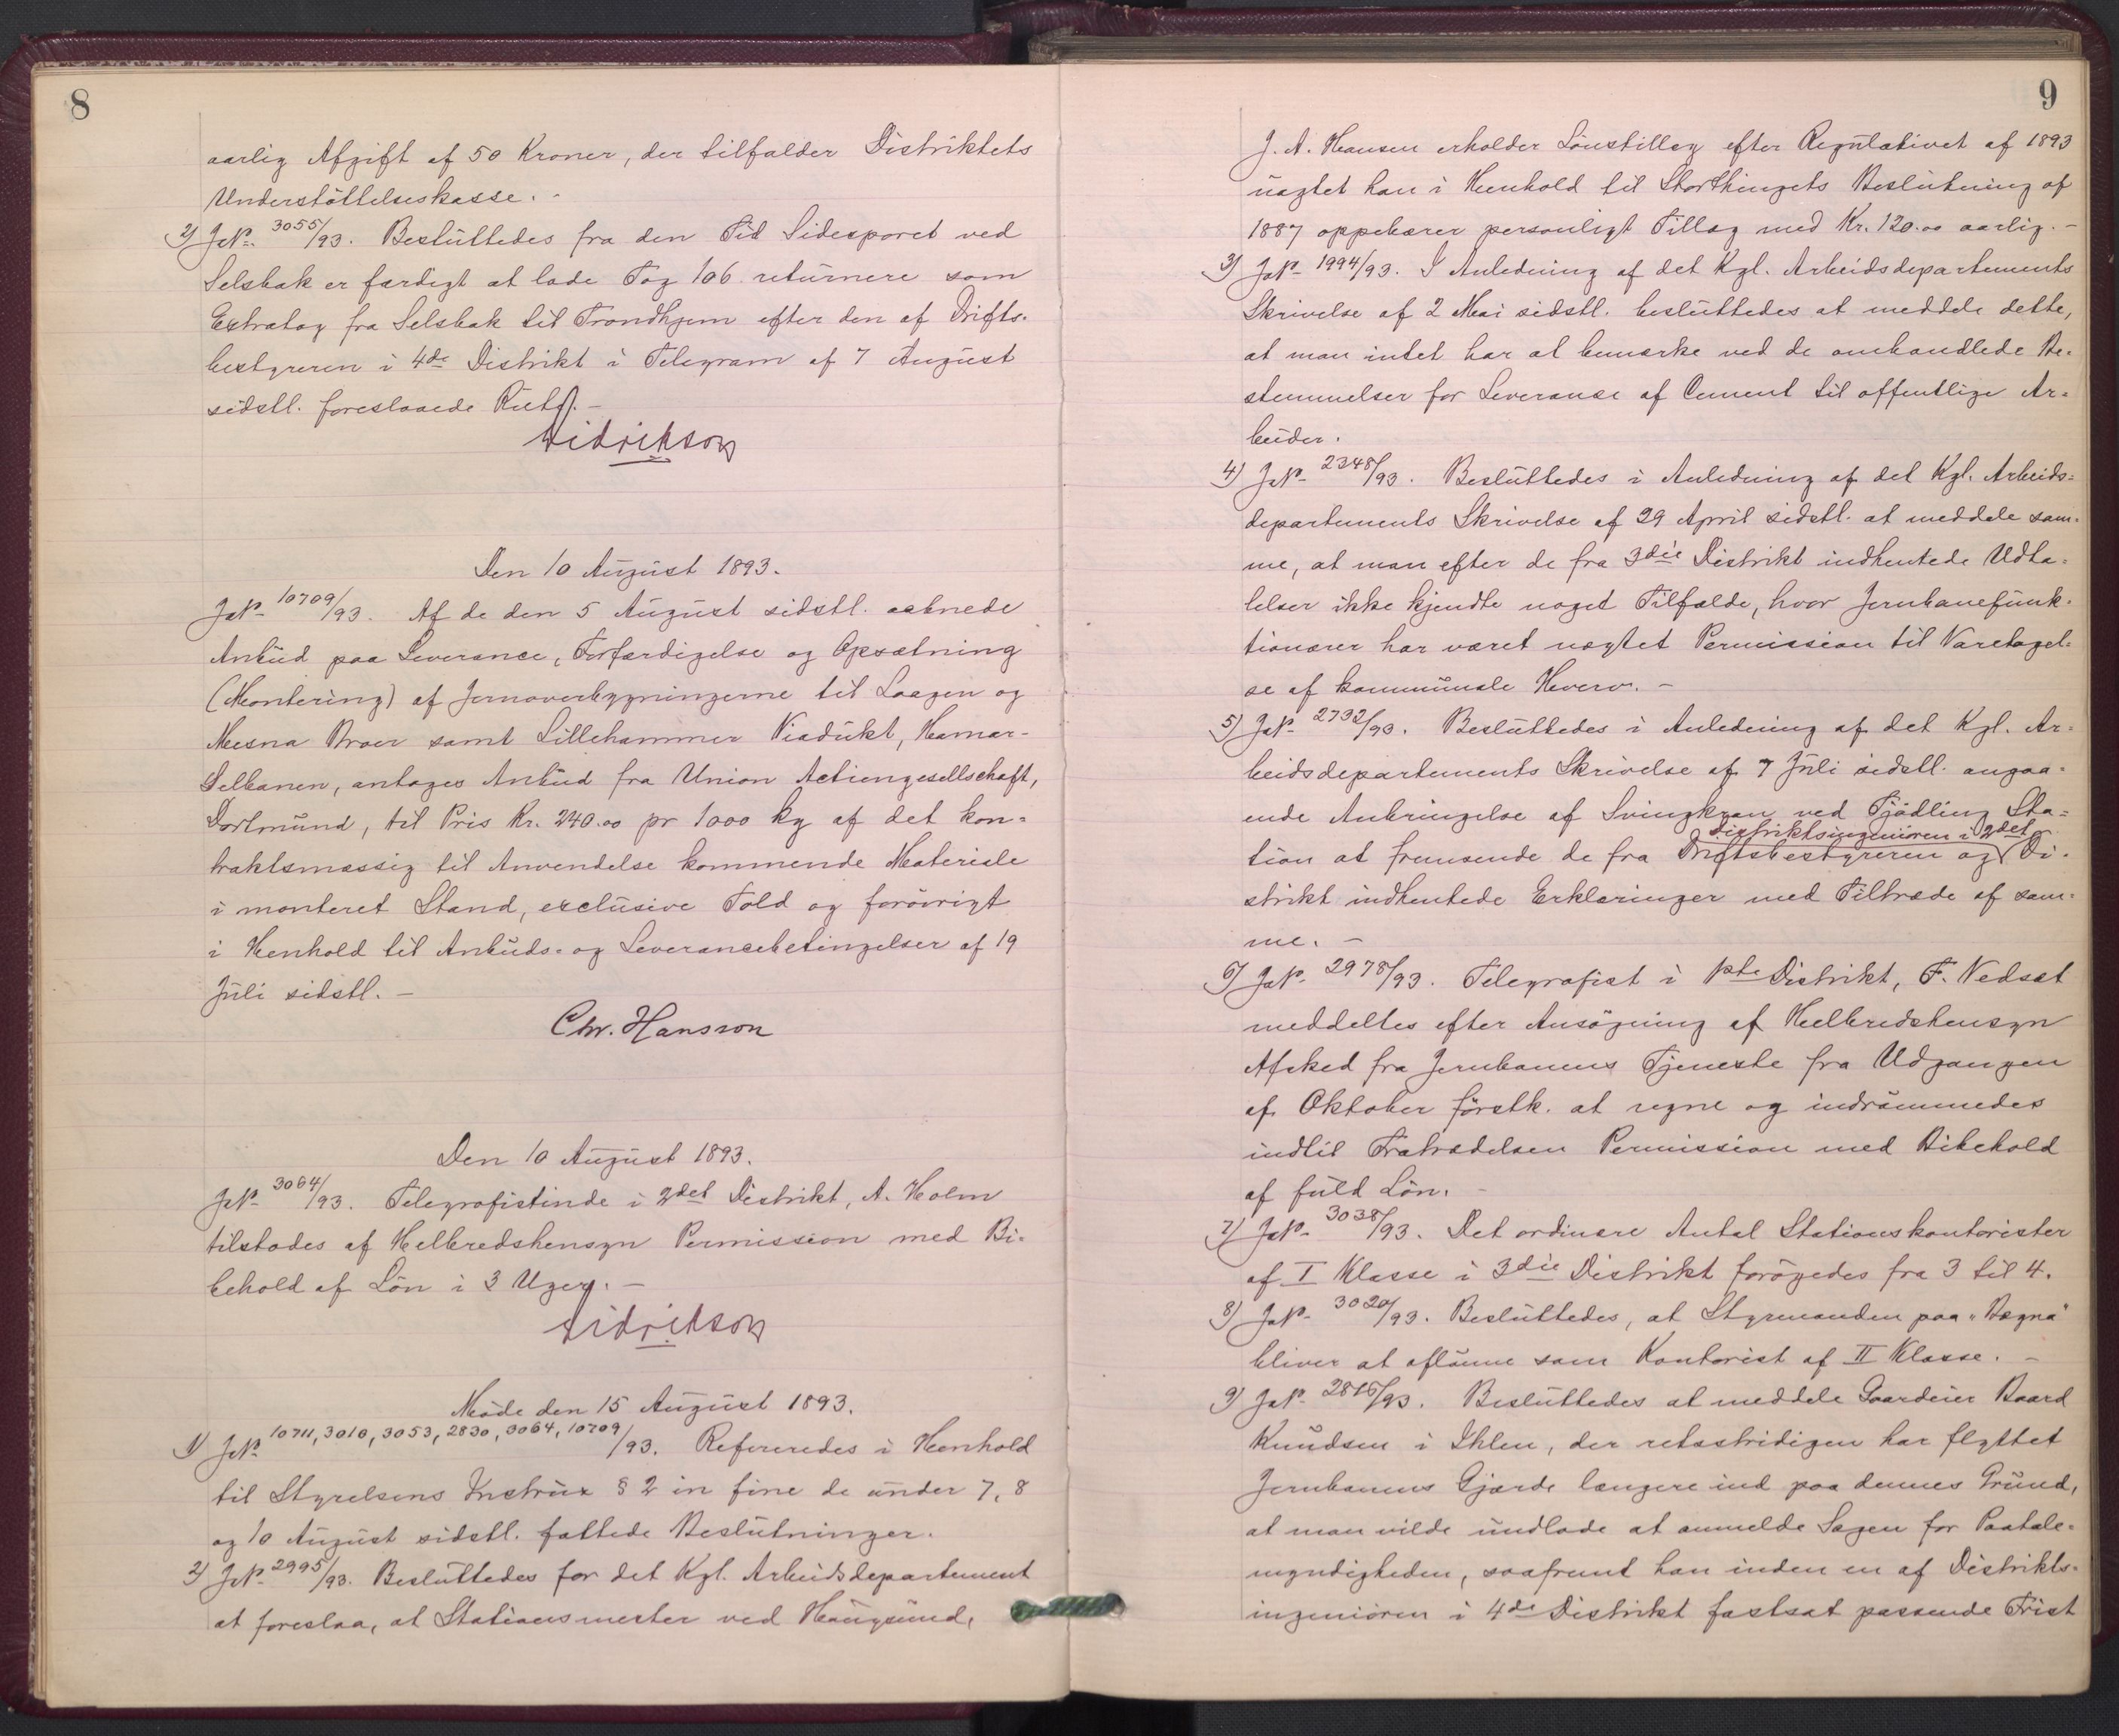 8
aarlig Afgift af 50 Kroner, der tilfalder Distriktets
Understöttelseskasse. -
2) JNo. 3055/93. Besluttedes fra den Tid Sidesporet ved
Selsbak er færdigt at lade Tog 106 returnere som
Extratog fra Selsbak til Trondhjem efter den af Drifts-
bestyreren i 4de Distrikt i Telegram af 7 August
sidstl. foreslaaede Rute. -
Didrikson
Den 10 August 1893.
JNo. 10709/93. Af de den 5 August sidstl. aabnede
Anbud paa Leverance, Forfærdigelse og Opsætning
(Montering) af Jernoverbygningerne til Laagen og
Mesna Broer samt Lillehammer Viadukt, Hamar-
Selbanen, antages Anbud fra Union Actiengesellschaft,
Dortmund, til Pris Kr. 240.00 pr 1000 kg af det kon-
traktsmæssig til Anvendelse kommende Materiale
i monteret Stand, exclusive Told og forövrigt
i Henhold til Anbuds- og Leverancebetingelser af 19
Juli sidstl. -
Chr. Hansson
Den 10 August 1893.
JNo. 3064/93. Telegrafistinde i 2det Distrikt, A. Holm
tilstodes af Helbredshensyn Permission med Bi-
behold af Lön i 3 Uger. -
Didrikson
Möde den 15 August 1893.
1) JNo. 10711, 3010, 3053, 2830, 3064, 10709/93. Refereredes i Henhold
til Styrelsens Instrux § 2 in fine de under 7, 8
og 10 August sidstl. fattede Beslutninger.
2) JNo. 2995/93. Besluttedes for det Kgl. Arbeidsdepartement
at foreslaa, at Stationsmester ved Haugsund,
9
J. A. Hansen erholder Lönstillæg efter Regulativet af 1893
uagtet han i Henhold til Storthingets Beslutning af
1887 oppebærer personligt Tillæg med Kr. 120.00 aarlig. -
3) JNo. 1994/93. I Anledning af det Kgl. Arbeidsdepartements
Skrivelse af 2 Mai sidstl. besluttedes at meddele dette,
at man intet har at bemærke ved de omhandlede Be-
stemmelser for Leveranse af Cement til offentlige Ar-
beider.
4) JNo. 2348/93. Besluttedes i Anledning af det Kgl. Arbeids-
departements Skrivelse af 29 April sidstl. at meddele sam-
me, at man efter de fra 3die Distrikt indhentede Udta-
lelser ikke kjendte noget Tilfælde, hvor Jernbanefunk-
tionærer har været nægtet Permission til Varetagel-
se af kommunale Hverv. -
5) JNo. 2732/93. Besluttedes i Anledning af det Kgl. Ar-
beidsdepartements Skrivelse af 7 Juli sidstl. angaa-
ende Anbringelse af Svingkran ved Tjödling Sta-
distriktsingeniören i 2det
tion at fremsende de fra Driftsbestyreren og Di-
strikt indhentede Erklæringer med Tiltræde af sam-
me. -
6) JNo. 2978/93. Telegrafist i 1ste Distrikt, F. Nedsat
meddeltes efter Ansögning af Helbredshensyn
Afsked fra Jernbanens Tjeneste fra Udgangen
af Oktober förstk. at regne og indrömmedes
indtil Fratrædelsen Permission med Bibehold
af fuld Lön. -
7) JNo. 3038/93. Det ordinære Antal Stationskontorister
af I Klasse i 3die Distrikt forögedes fra 3 til 4.
8) JNo. 3020/93. Besluttedes, at Styrmanden paa "Bægna"
bliver at aflönne som Kontorist af II Klasse. -
9) JNo. 2816/93. Besluttedes at meddele Gaardeier Baard
Knudsen i Ihlen, der retsstridigen har flyttet
Jernbanens Gjærde længere ind paa dennes Grund,
at man vilde undlade at anmelde Sagen for Paatale-
myndigheden, saafremt han inden en af Distrikts-
ingeniören i 4de Distrikt fastsat passende Frist